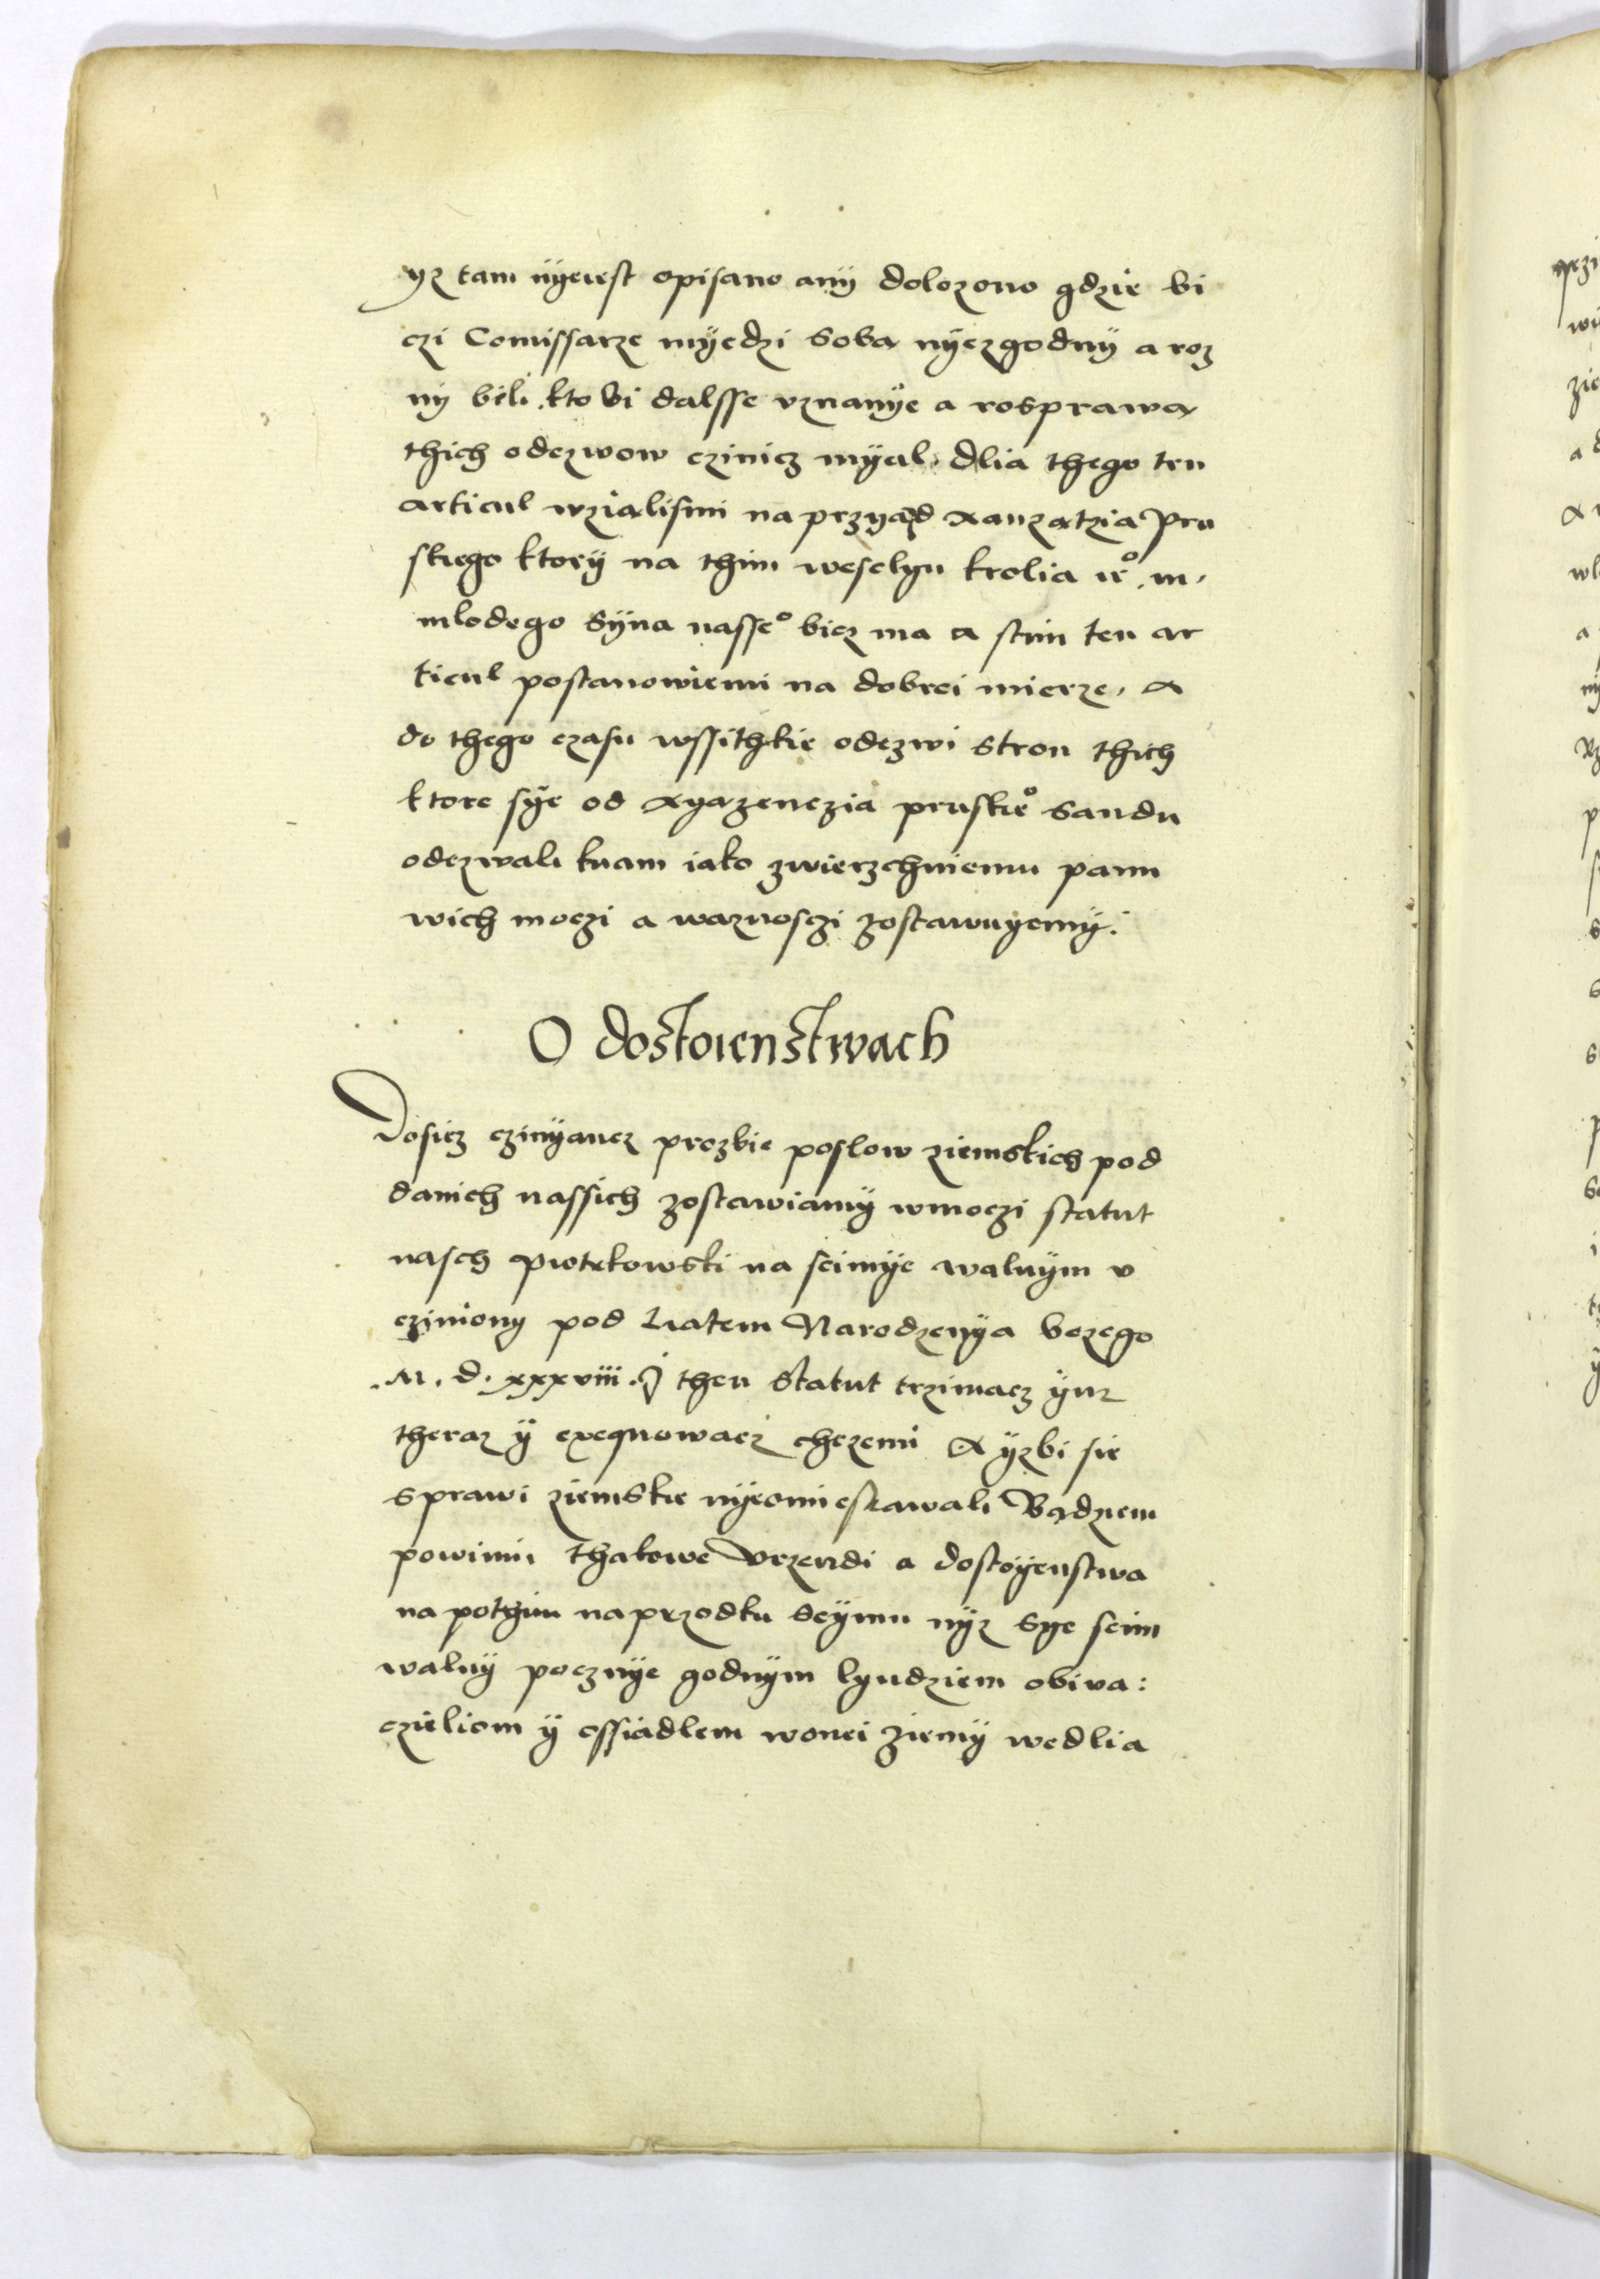 yz tam nÿeiest opisano anÿ dolozono gdzie bi
czi Comissarze mÿedzi soba nÿezgodnÿ a roz
nÿ bili kto bi dalsse vznanÿe a rosprawa
thich odezwow czinicz mÿal, dlia thego ten
articul wzialismi na przyad xanzatzia Pru
skiego ktorÿ na thim weselyu krolia ieo. m.
mlodego Sÿna nasseo bicz ma a stim ten ar
ticul postanowiemi na dobrei mierze, A
do thego czasu wssithkie odezwi stron thich
ktore sÿe od xyazenczia pruskieo sandu
odezwali knam iako zwierzchniemu panu
wich moczi a waznosczi zostawuyemÿ.
O dostoienstwach
Dosicz czinÿancz prozbie poslow ziemskich pod
danich nassich zostawiamÿ wmoczi statut
nasch piotrkowski na seimÿe walnÿm v
cziniony pod Liatem Narodzenÿa bozego
.M. d. xxxviii. J then statut trzimacz ÿuz
theraz ÿ exequowacz chczemi A ÿzbi sie
sprawi ziemskie nÿeomiestawali Bądziem
powinni thakowe Vrzendi a dostoÿenstwa
na pothim naprzodku Seÿmu nÿz sye seim
walnÿ pocznÿe godnÿm lyudziem obiva:
czieliom ÿ ossiadlem wonei ziemÿ wedlia